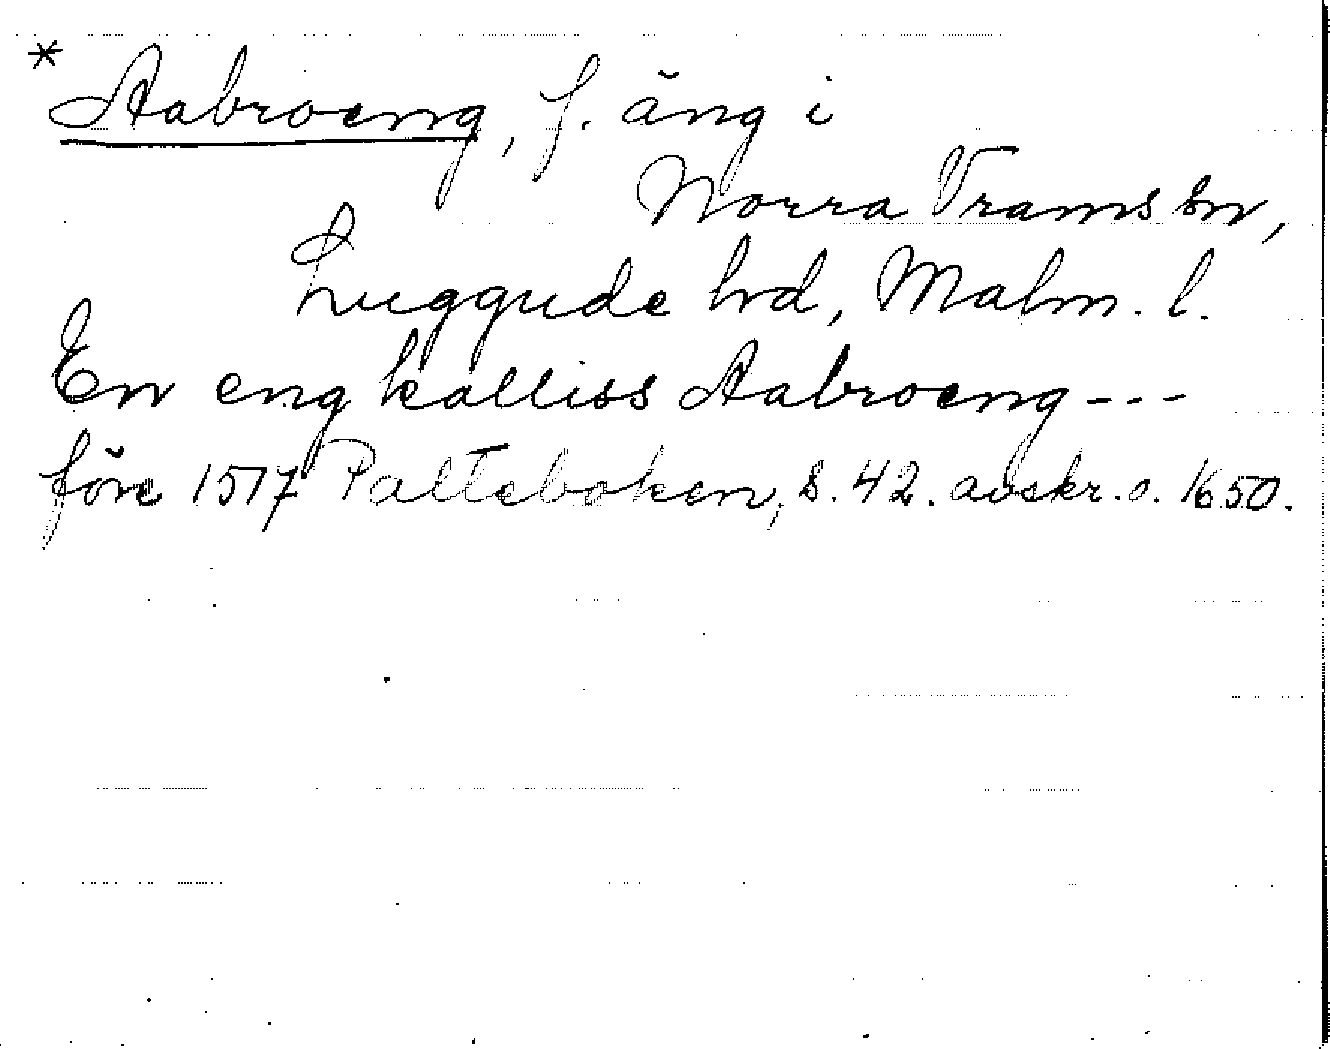 * Aabroeng, f. äng i
Norra Vrams sn,
Luggude hd, Malm. l.
En eng kalliss Aabroeng ---
före 1517 Palteboken, s. 42. avskr. o. 1650.